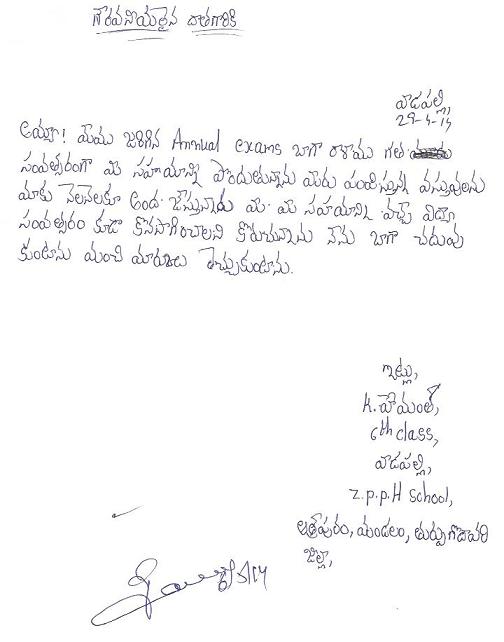 గౌరవనీయులైన దాతగారికి
వాడపల్లి,
29-4-14
అయ్యా! మేము జరిగిన Annual exams బాగా రాశాము గత
సంవత్సరంగా మీ సహాయాన్ని పొందుతున్నాను మీరు పంపిస్తున్న వస్తువులను
మాకు నెలనెలకూ అంద చేస్తున్నారు మీ సహాయాన్ని వచ్చే విద్యా
సంవత్సరం కూడా కొనసాగించాలని కోరుచున్నాను నేను బాగా చదువు
కుంటాను మంచి మారుకులు తెచ్చుకుంటాను.
ఇట్లు,
K. హేమంత్,
6th class,
వాడపల్లి,
Z.P.P.H School,
ఆత్రేపురం, మండలం, తూర్పుగోదావరి
జిల్లా,